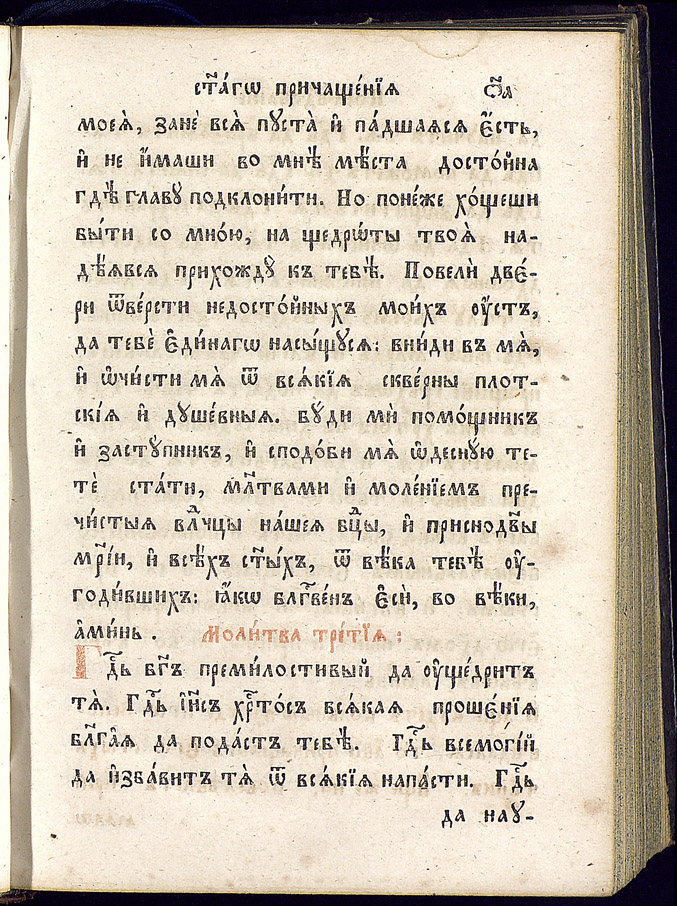 ст҃а́гѡ причаще́нїѧ с҃а
моеѧ̀, занѐ всѧ̀ пꙋста̀ и҆ па́дшаѧсѧ є҆́сть,
и҆ не и҆́маши во мнѣ̀ мѣ́ста досто́йна
гдѣ̀ главꙋ̀ подклони́ти. Но поне́же хо́щеши
бы́ти со мно́ю, на щедрѡ́ты твоѧ̀ на-
дѣ́ѧвсѧ прихождꙋ̀ къ тебѣ̀. Повелѝ две́-
ри ѿве́рсти недосто́йныхъ мои́хъ ᲂу҆́стъ,
да тебѐ є҆ди́нагѡ насы́щꙋсѧ: вни́ди въ мѧ̀,
и҆ ѡ҆чи́сти мѧ̀ ѿ всѧ́кїѧ скве́рны плот-
скі́ѧ и҆ дꙋше́вныѧ. бꙋ́ди мѝ помо́щникъ
и҆ застꙋ́пникъ, и҆ сподо́би мѧ̀ ѡ҆деснꙋ́ю те-
тѐ ста́ти, мл҃твами и҆ моле́нїемъ пре-
чи́стыѧ влⷣчцы на́шеѧ бцⷣы, и҆ приснодв҃ы
мр҃і́и, и҆ всѣ́хъ ст҃ы́хъ, ѿ вѣ́ка тебѣ̀ ᲂу҆-
годи́вшихъ: ꙗ҆́кѡ блгⷭ҇ве́нъ є҆сѝ, во вѣ́ки,
а҆ми́нь. Моли́тва тре́тїѧ:
Гдⷭ҇ь бг҃ъ преми́лостивый да ᲂу҆ще́дритъ
тѧ̀. Гдⷭ҇ь і҆и҃съ хрⷭ҇то́съ всѧ́каѧ проше́нїѧ
бл҃га́ѧ да пода́стъ тебѣ̀. Гдⷭ҇ь всемогі́й
да и҆зба́витъ тѧ̀ ѿ всѧ́кїѧ напа́сти. Гдⷭ҇ь
да наꙋ-